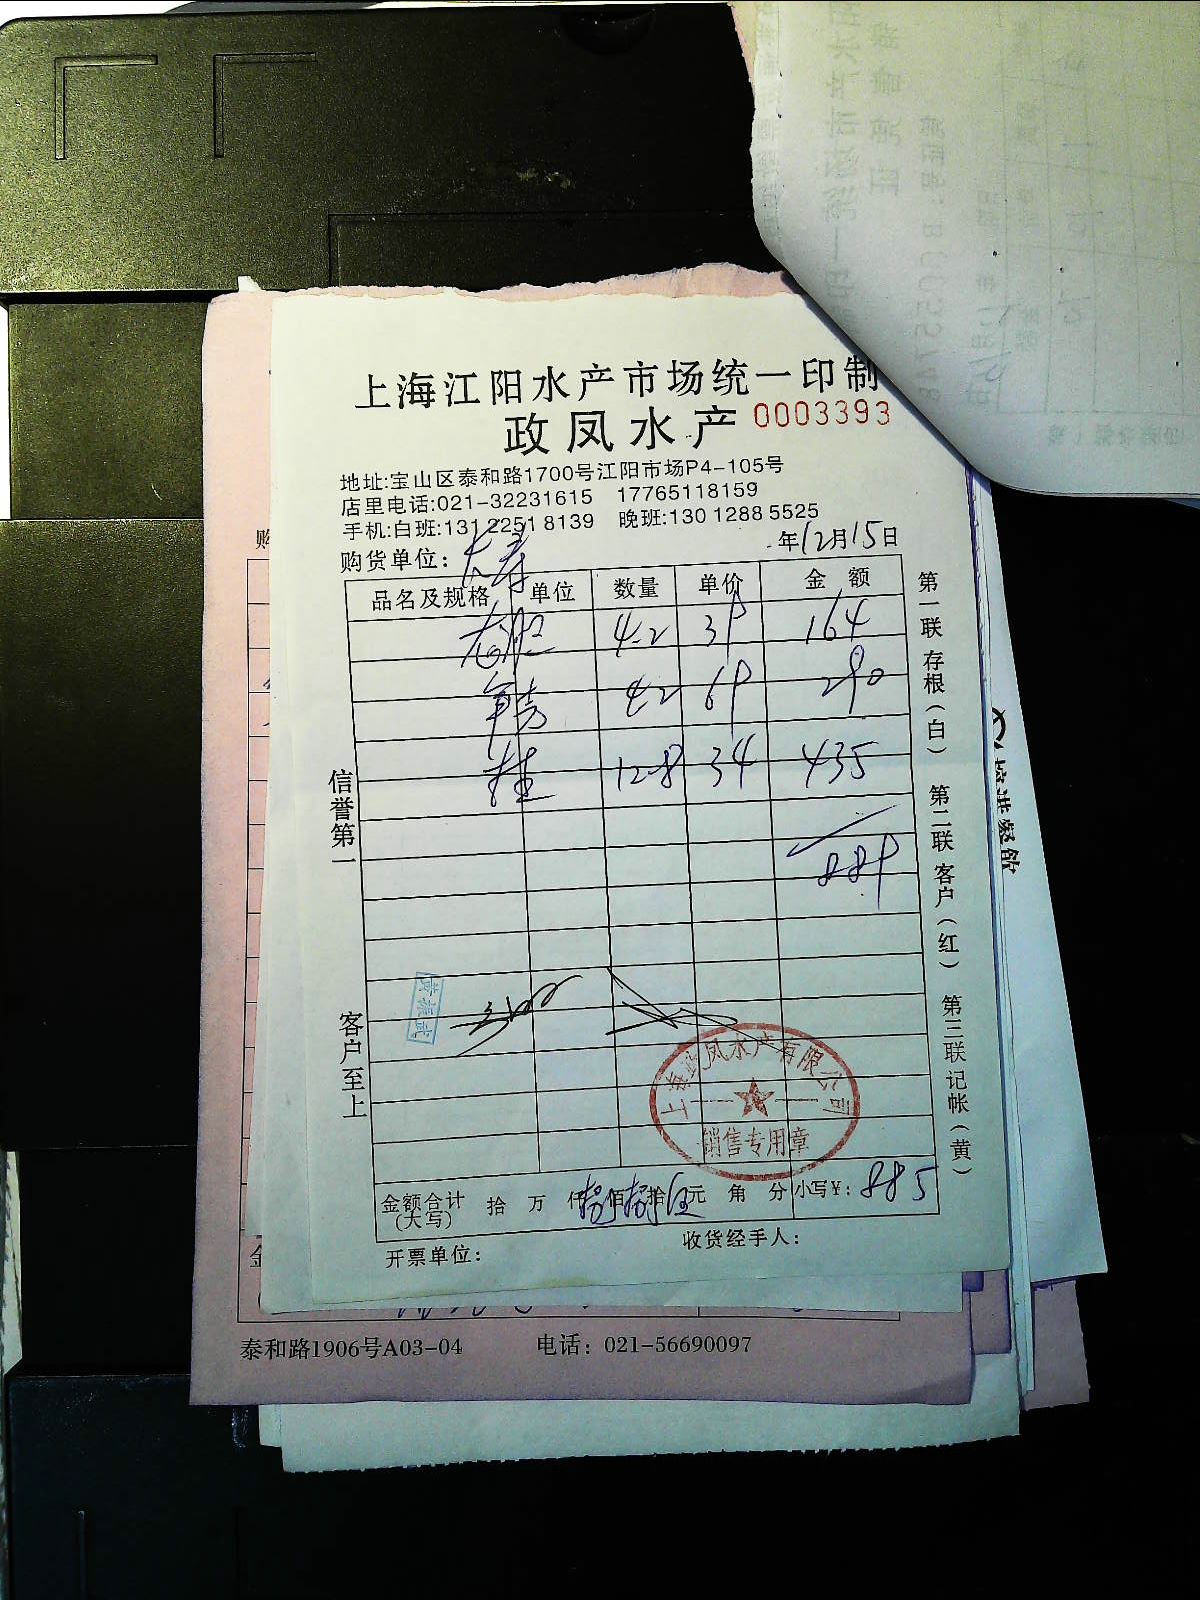 上海江阳水产市场统一印制
政凤水产 0003393
地址:宝山区泰和路1700号江阳市场P4-105号
店里电话:021-32231615 17765118159
手机:白班:131 2251 8139 晚班:130 1288 5525
购货单位:
年12月15日
品名及规格 单位 数量 单价 金额
4.2 39 164
4.2 69 290
桂 12.8 34 435
889
信誉第一
客户至上
第一联 存根(白) 第二联 客户(红) 第三联 记帐(黄)
上海政凤水产有限公司
销售专用章
金额合计(大写) 拾 万 仟 捌佰捌拾伍元 角 分 小写¥: 885
开票单位:
收货经手人:
泰和路1906号A03-04 电话: 021-56690097